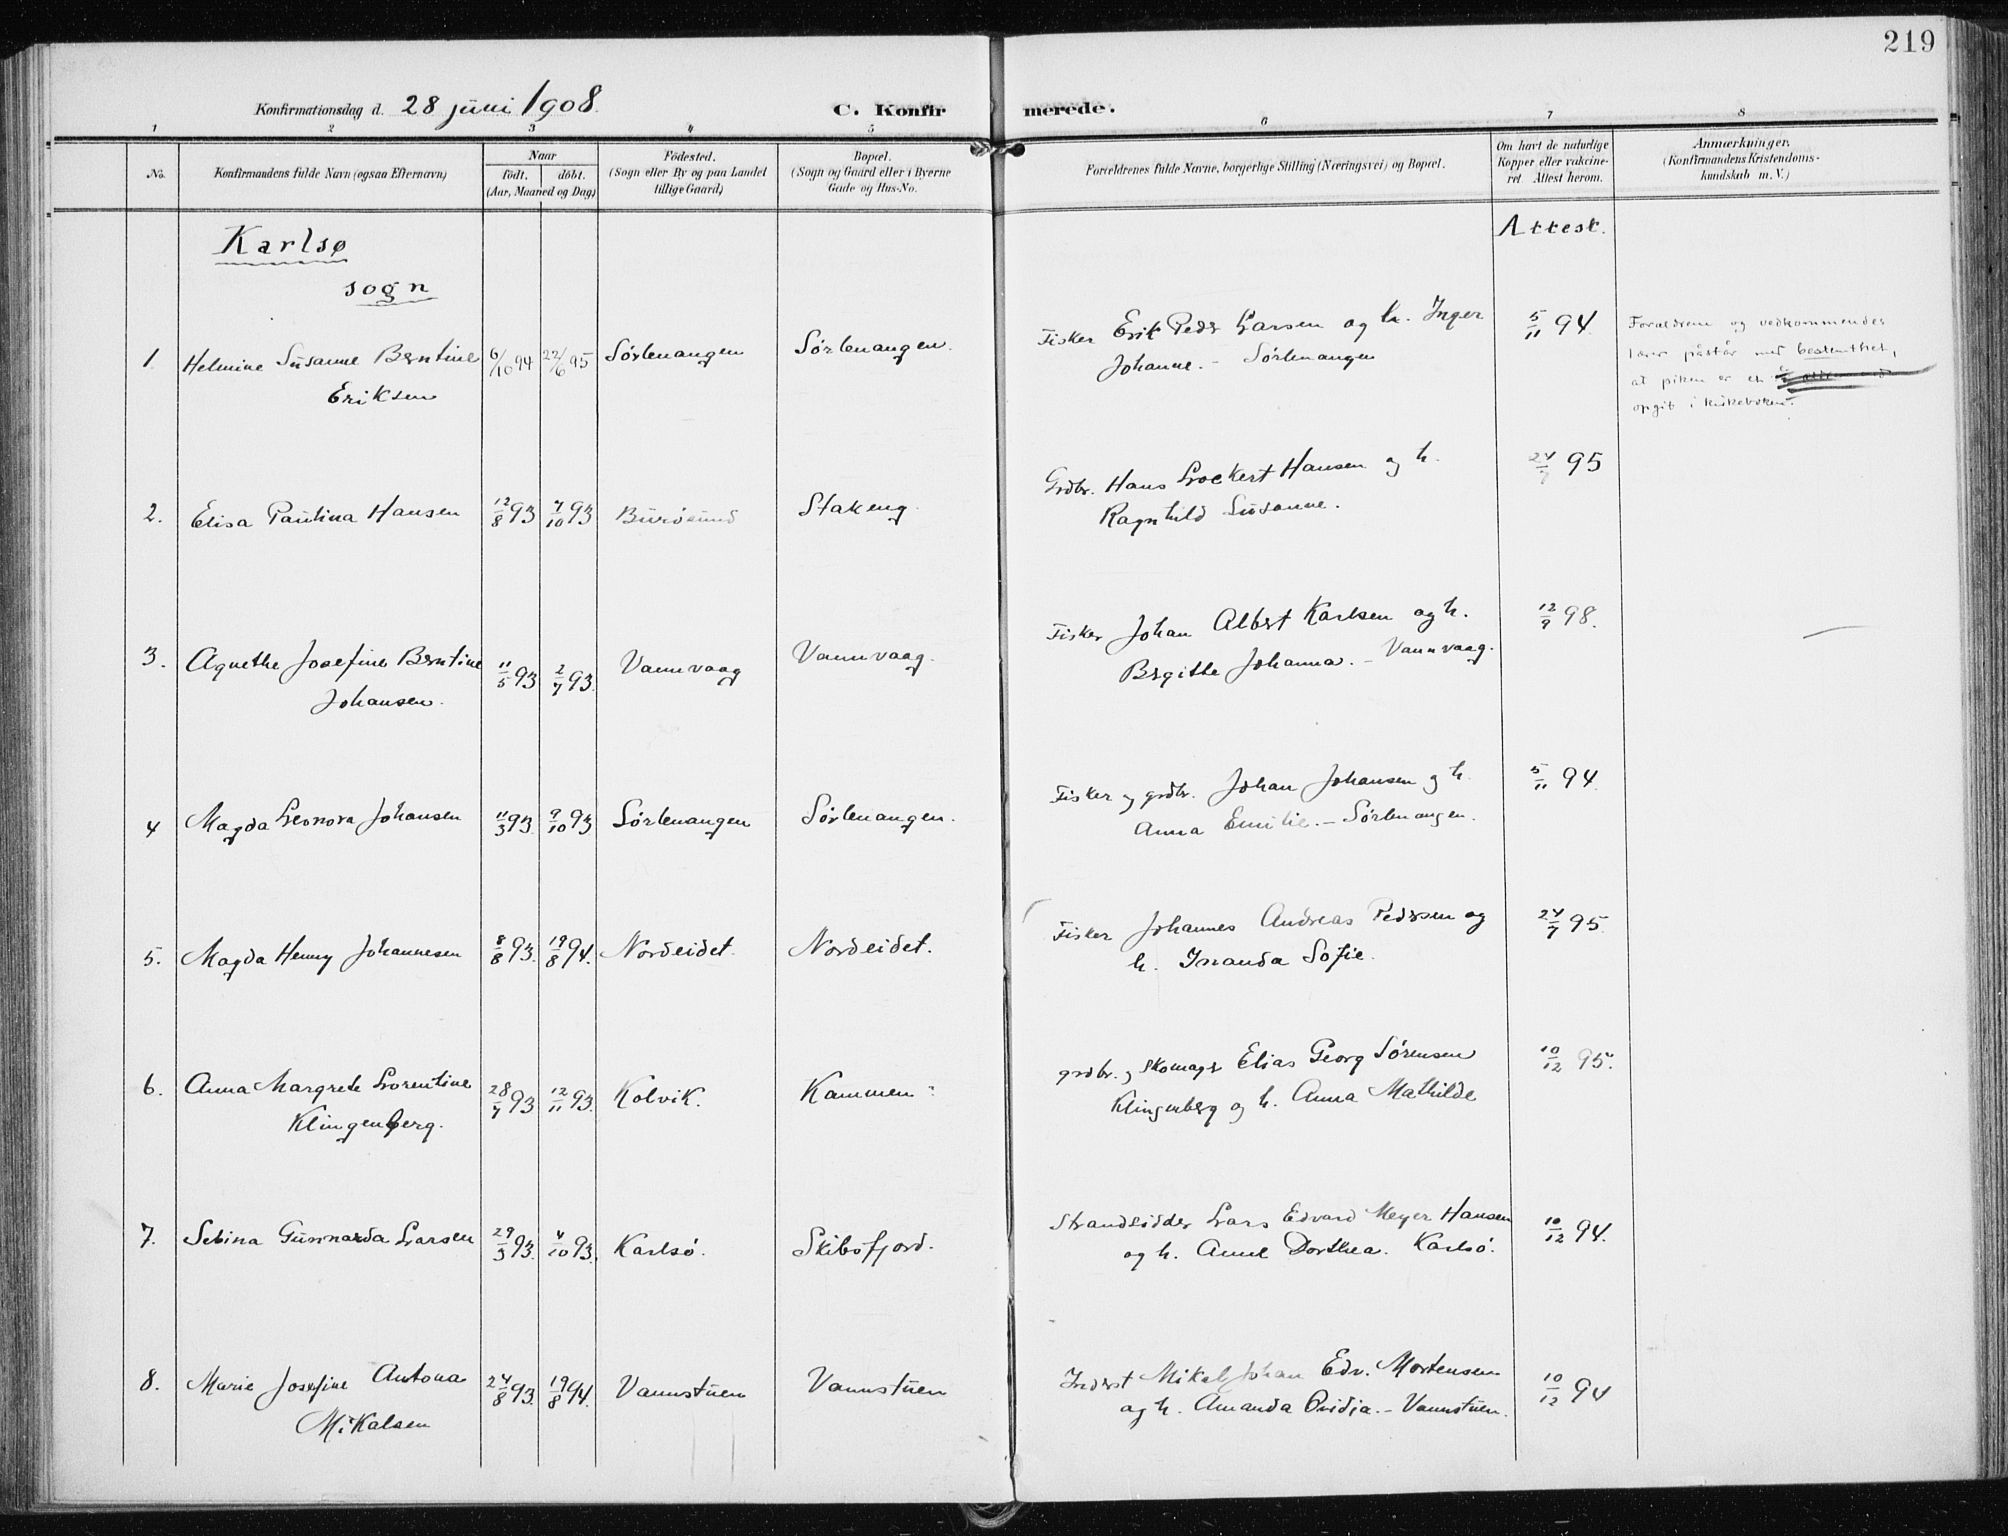 219
Konfirmationsdag d. 28 juni 1908. C. Konfirmerede.
1 2 3 4 5 6 7 8
No. Konfirmandens fulde Navn (ogsaa Efternavn) Naar födt. döbt. (Aar, Maaned og Dag) Födested. (Sogn eller By og paa Landet tillige Gaard) Bopæl. (Sogn og Gaard eller i Byerne Gade og Hus-No. Forældrenes fulde Navne, borgerlige Stilling (Næringsvei) og Bopæl. Om havt de naturlige Kopper eller vakcineret. Attest herom. Anmærkninger. (Konfirmandens Kristendomskundskab m. V.)
Karlsø
sogn
Attest.
1 Helmine Susanne Berntine 6/10 94 22/6 95 Sørlenangen Sørlenangen. Fisker Erik Peder Larsen og h. Inger 5/11 94 Forældrene og vedkommendes
Eriksen Johanne. - Sørlenangen lærer påstår med bestemthet,
at piken er et
opgit i kirkeboken.
2. Elisa Paulina Hansen 12/8 93 7/10 93 Burøsund Stakeng. Grdbr. Hans Lockert Hansen og h. 24/7 95
Ragnhild Susanne.
3. Agnethe Josefine Berntine 11/5 93 2/7 93. Vannvaag Vannvaag. Fisker Johan Albert Karlsen og h. 12/9 98.
Johansen. Bergitte Johanna. - Vannvaag.
4 Magda Leonora Johansen 11/3 93. 9/10 93 Sørlenangen Sørlenangen. Fisker og grdbr. Johan Johansen og h. 5/11 94.
Anna Emilie. - Sørlenangen.
5. Magda Henny Johannesen 8/8 93. 19/8 94. Nordeidet. Nordeidet. Fisker Johannes Andreas Pedersen og 24/7 95.
h. Inanda Sofie.
6. Anna Margrete Lorentine 28/7 93 12/11 93. Kolvik. Kammen. grdbr. og skomager Elias Georg Sørensen 10/12 95.
Klingenberg. Klingenberg og h. Anna Mathilde
7. Sebina Gunnarda Larsen 29/3 93. 4/10 93. Karlsö. Skibsfjord. Strandsidder Lars Edvard Meyer Hansen 10/12 94.
og h. Anne Dorthea. Karlsö.
8. Marie Josefine Antona 24/8 93. 19/8 94. Vannstuen Vannstuen Inderst Mikal Johan Edv. Mortensen 10/12 94
Mikalsen og h. Amanda Ovidia. - Vannstuen.